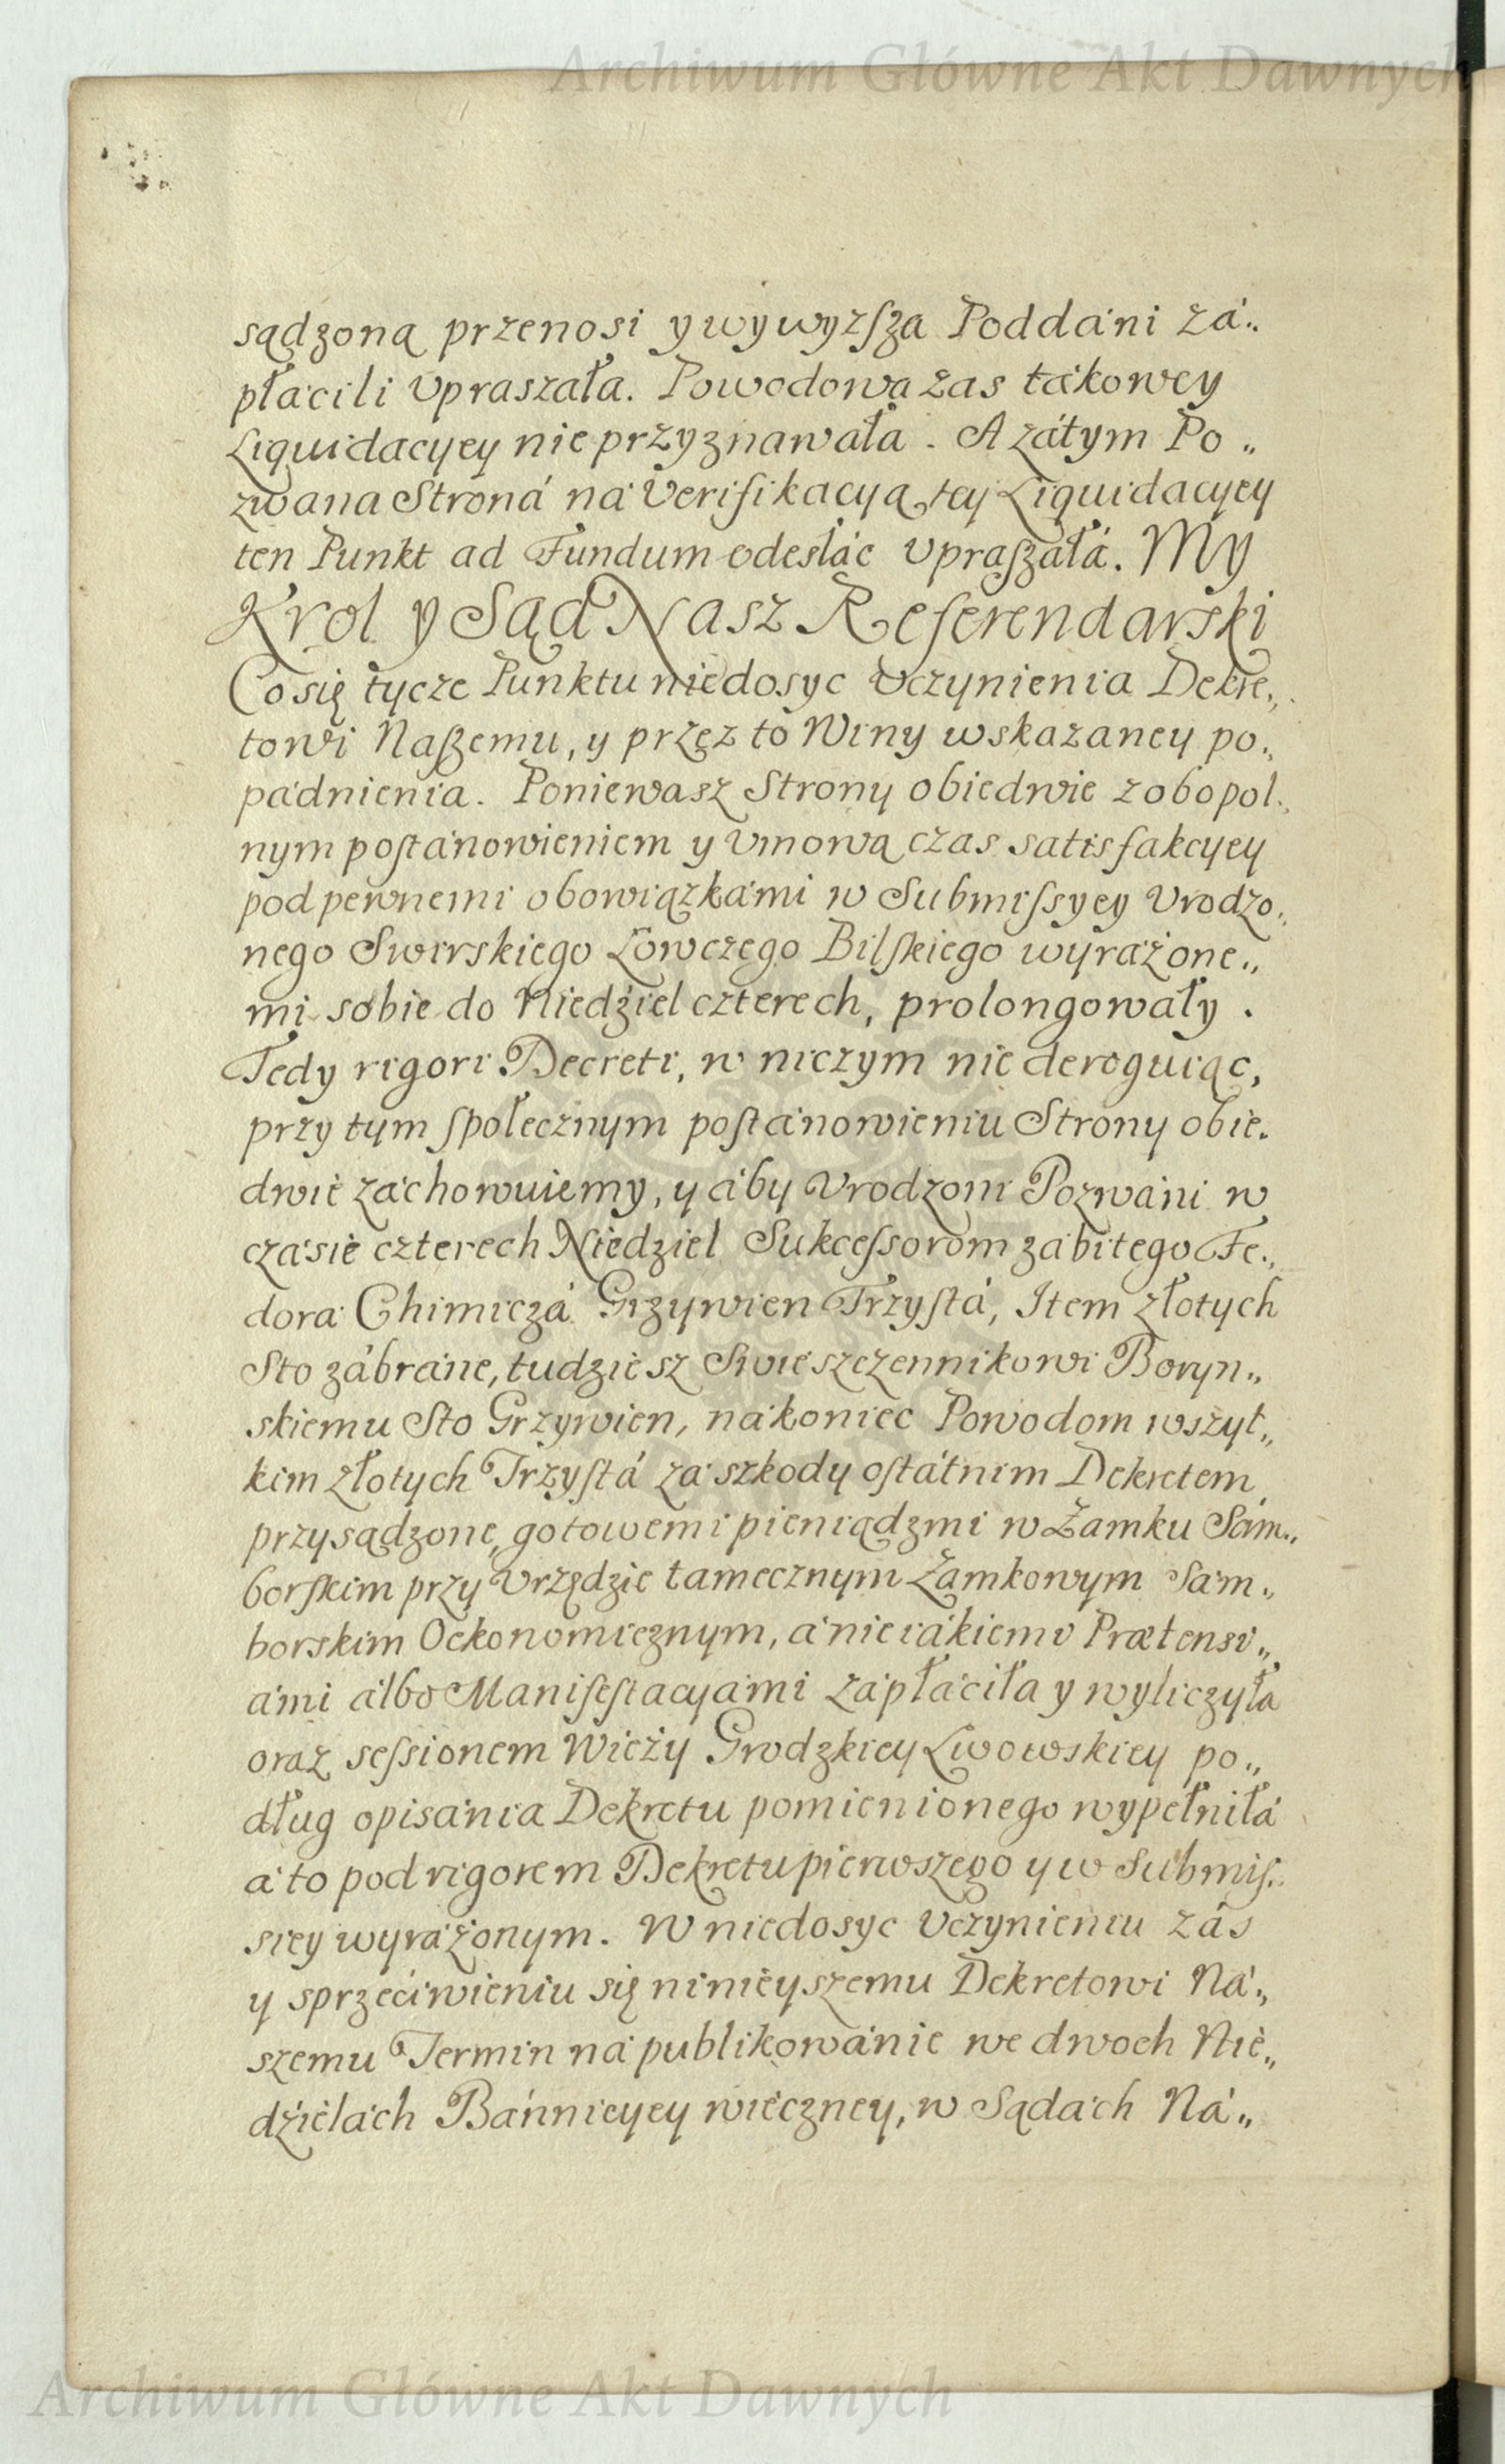 Archiwum Główne Akt Dawnych
sądzoną przenosi y wywyzſza Poddáni zá„
płácili Vpraszała. Powodowa zas tákowey
Liquidacyey nie przyznawała. A zátym Po„
zwana Stroná ná Verifikacyą tey Liquidacyey
ten Punkt ad Fundum odesláć Vpraſzáłá. My
Krol y Sąd Nasz Referendarski
Co się tycze Punktu niedosyc Vczynienia Dekre„
towi Naſzemu, y przez to Winy wskazaney po„
pádnienia. Poniewasz Strony obiedwie zobopol„
nym poſtánowieniem y Vmową czas satisfakcyey
pod pewnemi obowiązkámi w Submiſsyey Vrodzo„
nego Swirskiego Łowczego Bilſkiego wyráżone„
mi sobie do Niedźiel czterech, prolongowáły.
Tedy rigori Decreti, w niczym nie deroguiąc,
przy tym ſpołecznym poſtánowieniu Strony obie.
dwie záchowuiemy, y áby Vrodzoni Pozwáni w
czásie czterech Niedziel Sukceſsorom zábitego Fe„
dora Chimiczá Grzywien Trzyſtá, Item złotych
Sto zábráne, tudziesz Swieszczennikowi Boryn„
skiemu Sto Grzywien, nákoniec Powodom wszyt„
kim złotych Trzyſtá zá szkody oſtátnim Dekretem
przysądzone, gotowemi pieniądzmi w Zamku Sám„
borſkim przy Vrzędzie tamecznym Zamkowym Sám„
borskim Oekonomicznym, á nie iákiemi Prætensi„
ámi álbo Manifeſtacyámi zápłáciła y wyliczyła
oraz seſsionem Wieży Grodzkiey Lwowskiey po„
dług opisánia Dekretu pomienionego wypełniłá
á to pod rigorem Dekretu pierwszego y w Submiſ„
siey wyráżonym. W niedosyc Vczynieniu zás
y sprzeciwieniu się ninieyszemu Dekretowi Ná„
szemu Termin ná publikowánie we dwoch Nie„
dźielách Bánnicyey wieczney, w Sądách Ná„
Archiwum Główne Akt Dawnych